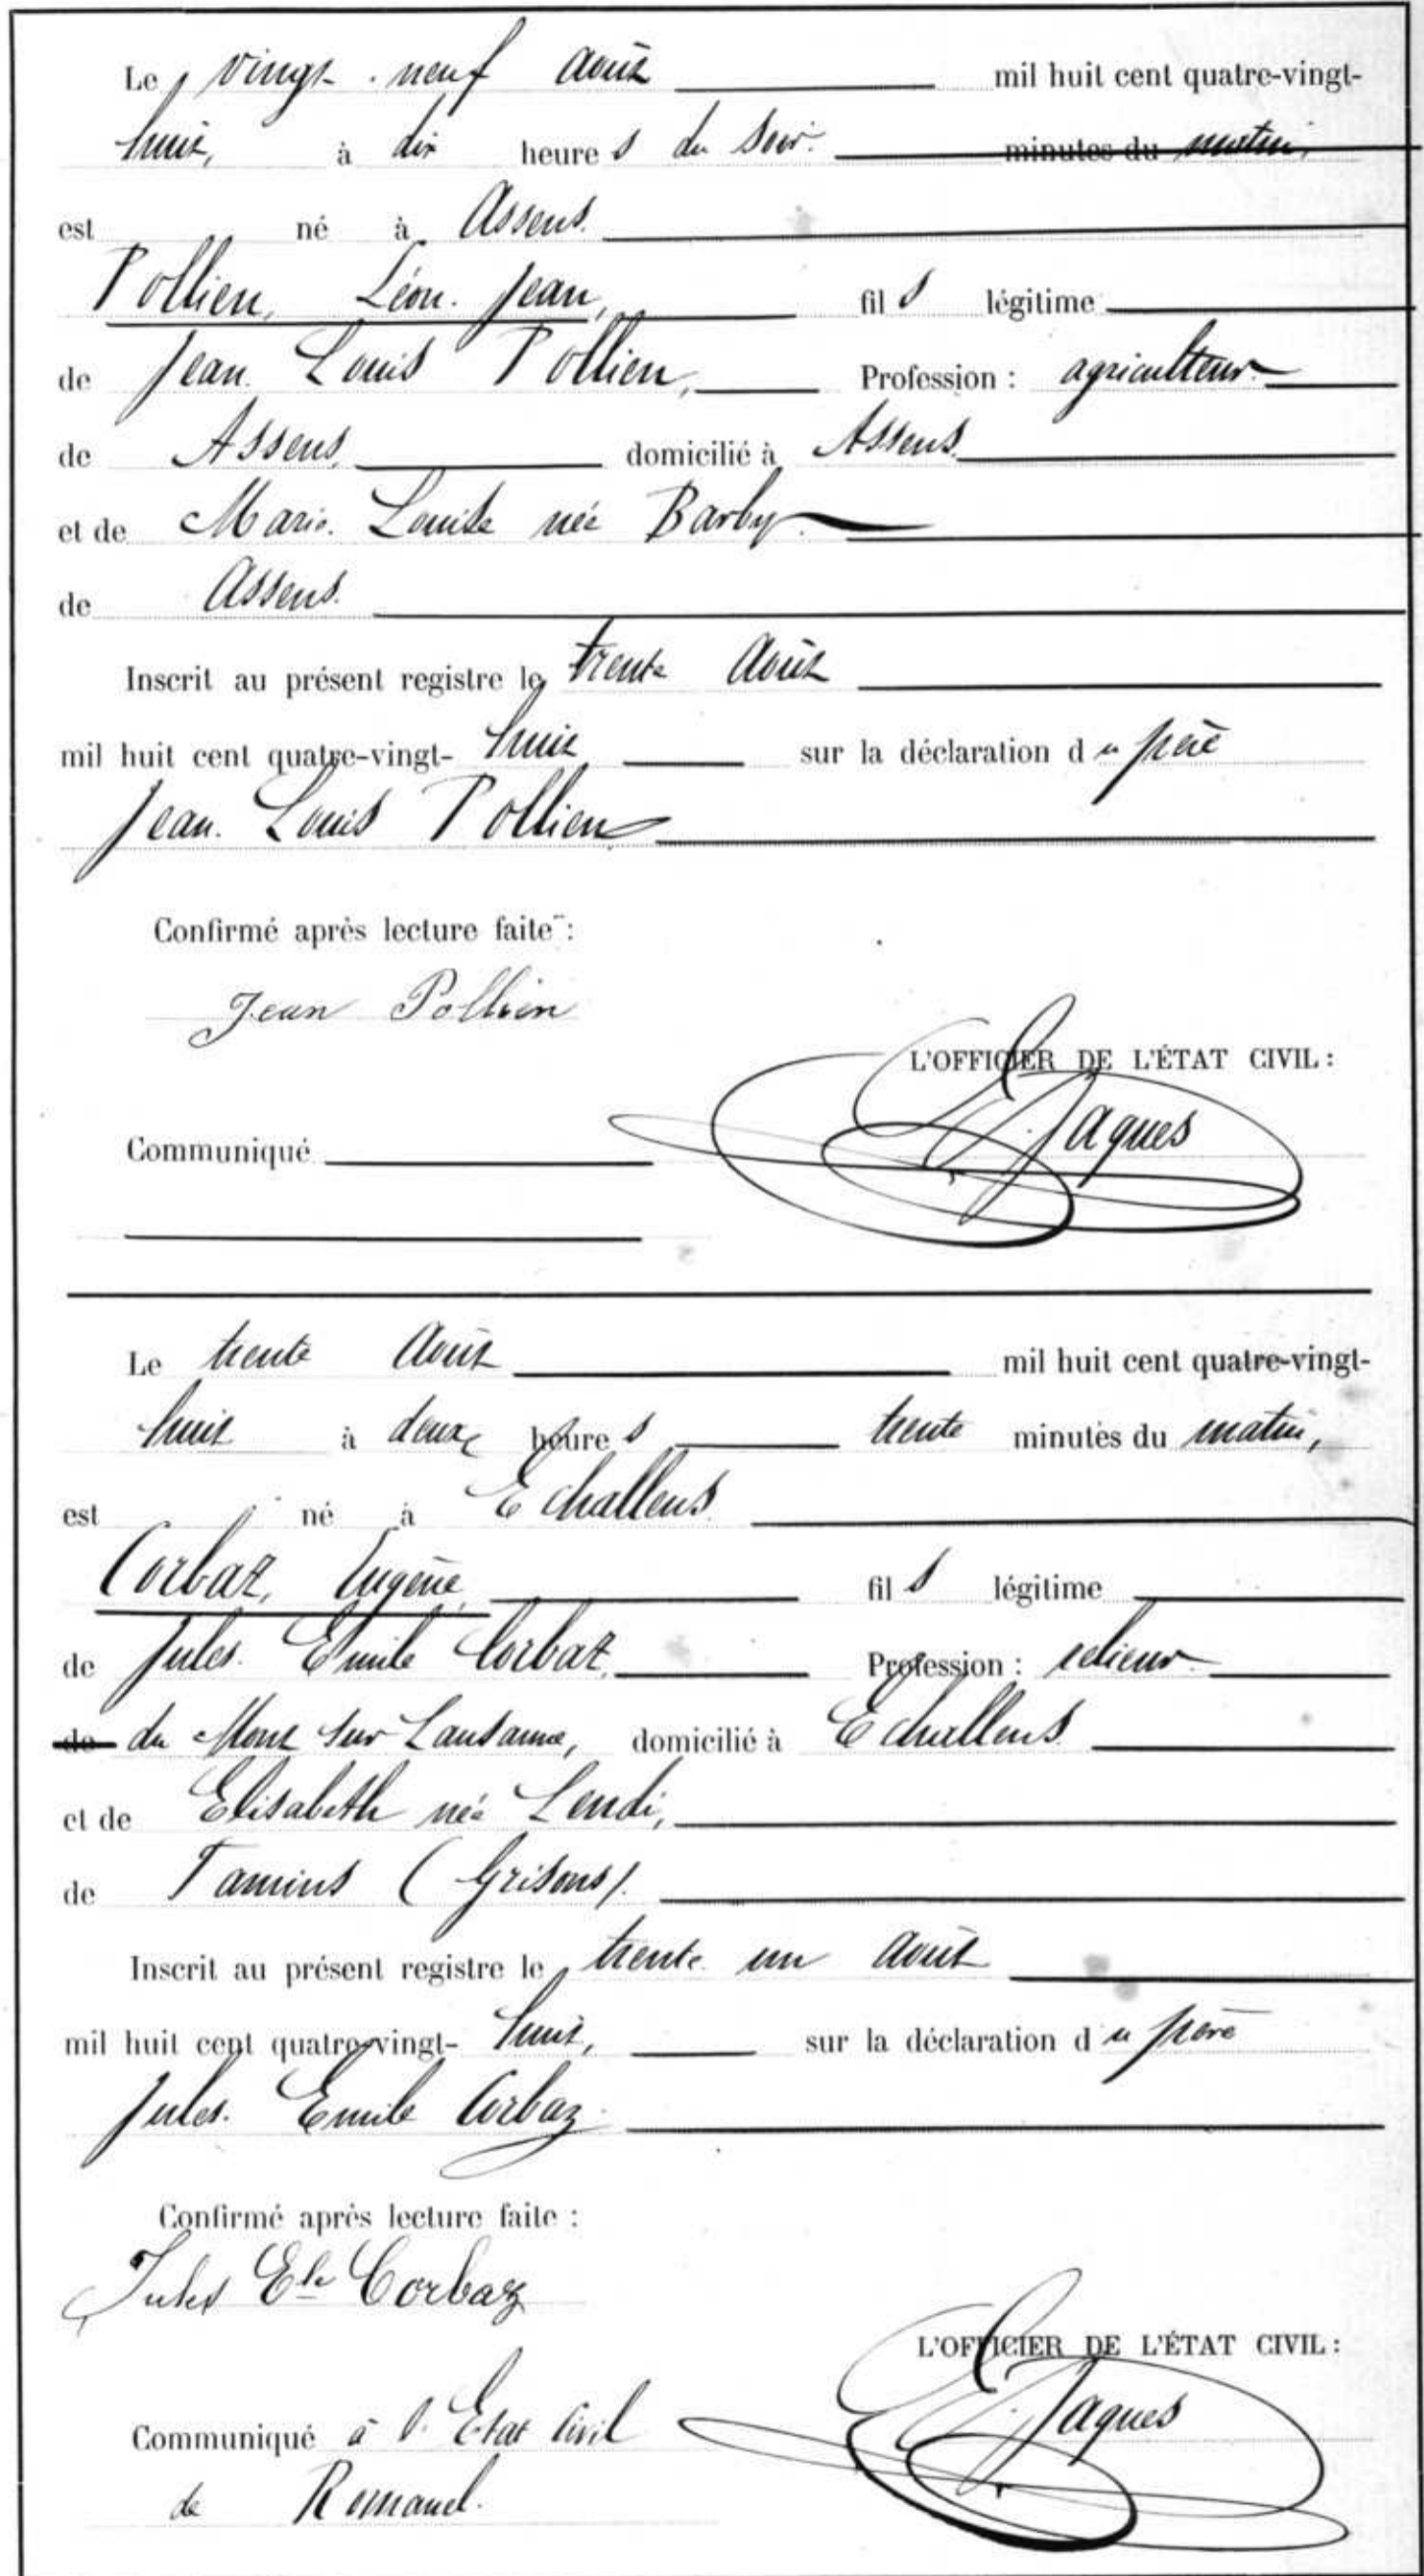 Le vingt-neuf Août mil huit cent quatre-vingt-
huit, à dix heures du soir. minutes du matin,
est né à Assens.
Pollien, Léon-Jean, fils légitime
de Jean-Louis Pollien, Profession : agriculteur
de Assens, domicilié à Assens.
et de Marie-Louise née Barby.
de Assens.
Inscrit au présent registre le trente Août
mil huit cent quatre-vingt-huit sur la déclaration du père
Jean-Louis Pollien
Confirmé après lecture faite :
Jean Pollien
L'OFFICIER DE L'ÉTAT CIVIL :
E. Jaques
Communiqué
Le trente Août mil huit cent quatre-vingt-
huit à deux heures trente minutes du matin,
est né à Echallens.
Corbaz, Eugène, fils légitime
de Jules-Emile Corbaz, Profession : relieur
de du Mont sur Lausanne, domicilié à Echallens.
et de Elisabeth née Lendi,
de Tamins (Grisons).
Inscrit au présent registre le trente-un Août
mil huit cent quatre-vingt-huit, sur la déclaration du père
Jules-Emile Corbaz.
Confirmé après lecture faite :
Jules Ele Corbaz
L'OFFICIER DE L'ÉTAT CIVIL :
E. Jaques
Communiqué à l'Etat Civil
de Romanel.